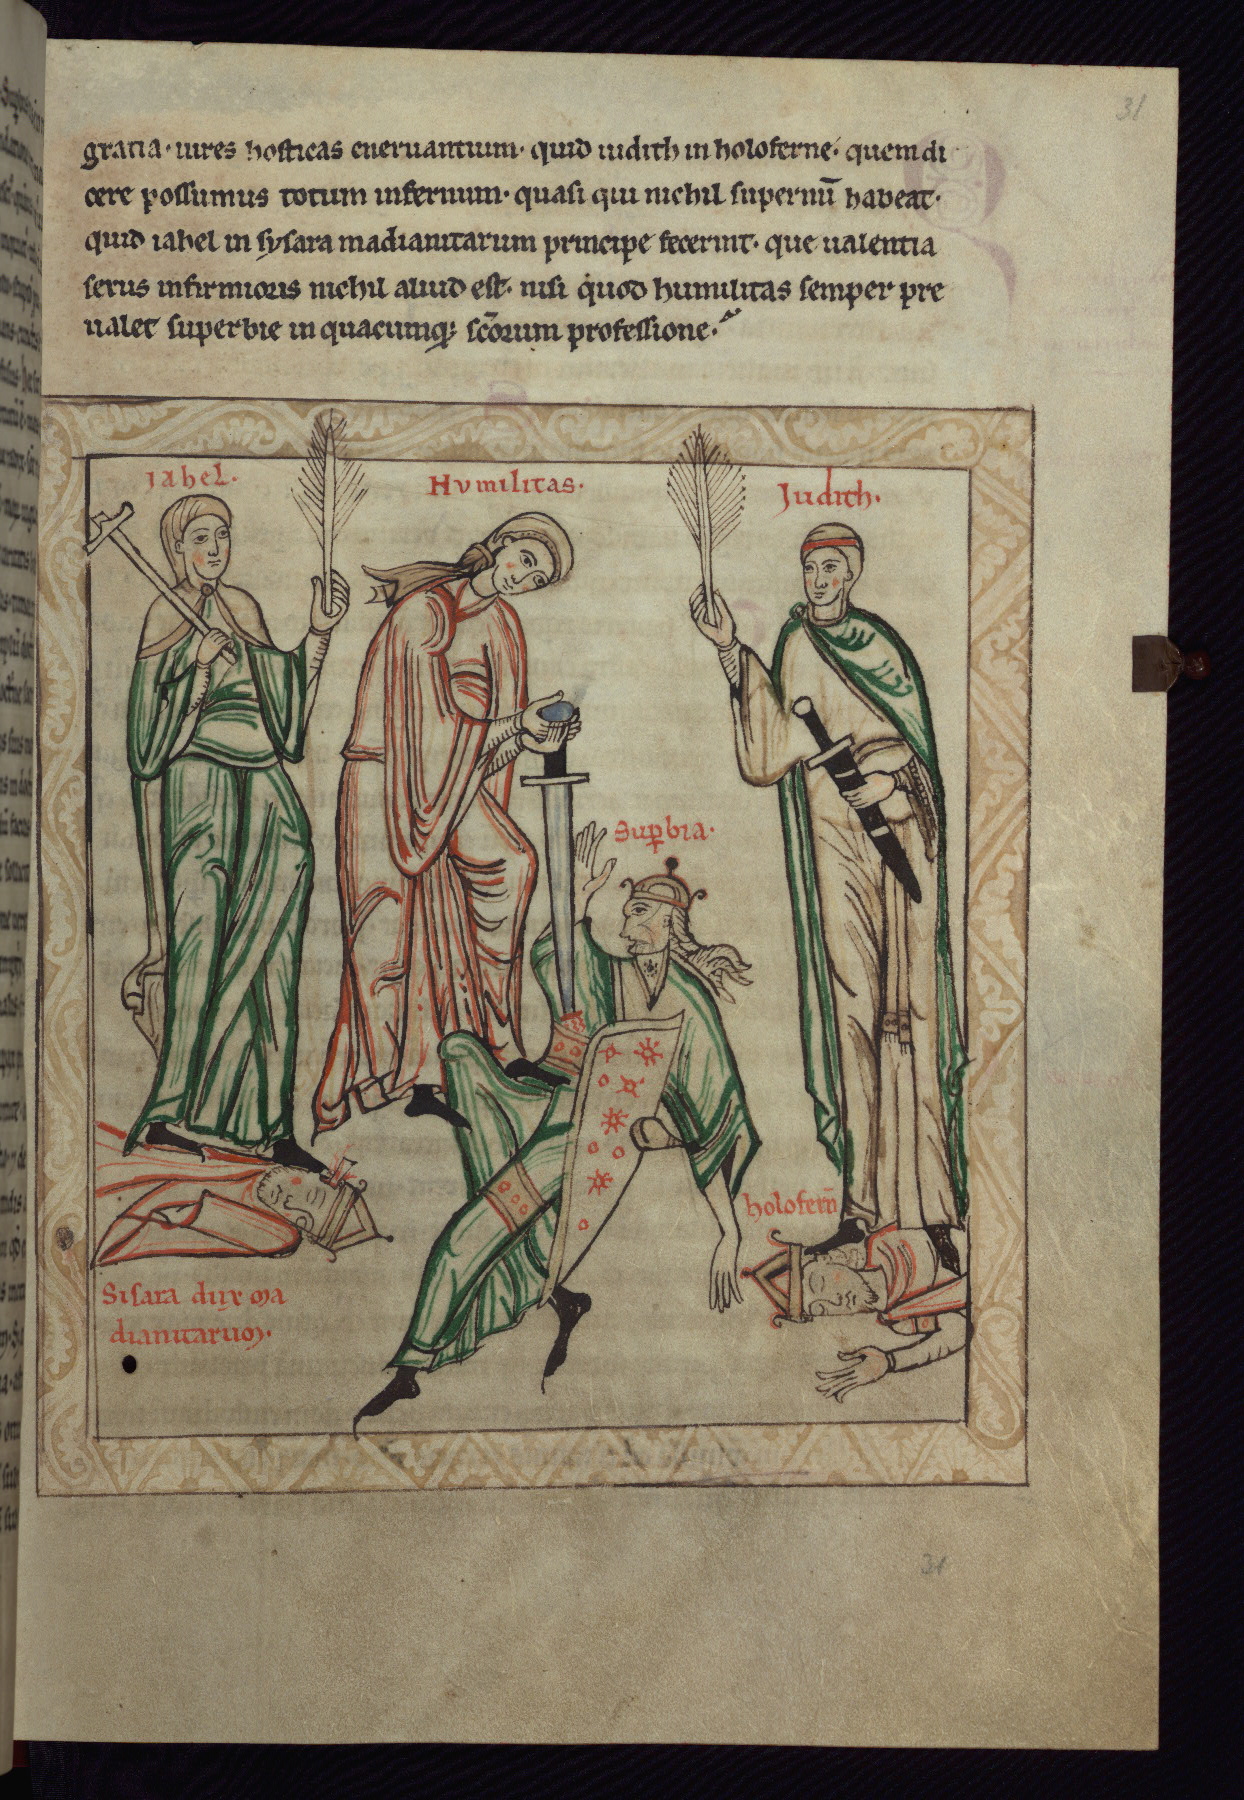 31
gratia· uires hosticas eneruantium· quid iudith in holoferne· quem di
cere possumus totum infernum· quasi qui nichil supernū habeat·
quid iahel in sysara madianitarum principe fecerint· que ualentia
sexus infirmioris nichil aliud est· nisi quod humilitas semper pre
ualet superbie in quacumq; scōrum professione·
iahel·
Humilitas·
Iudith·
Sup̄bia·
holofern̄
Sisara dux ma
dianitarum·
31